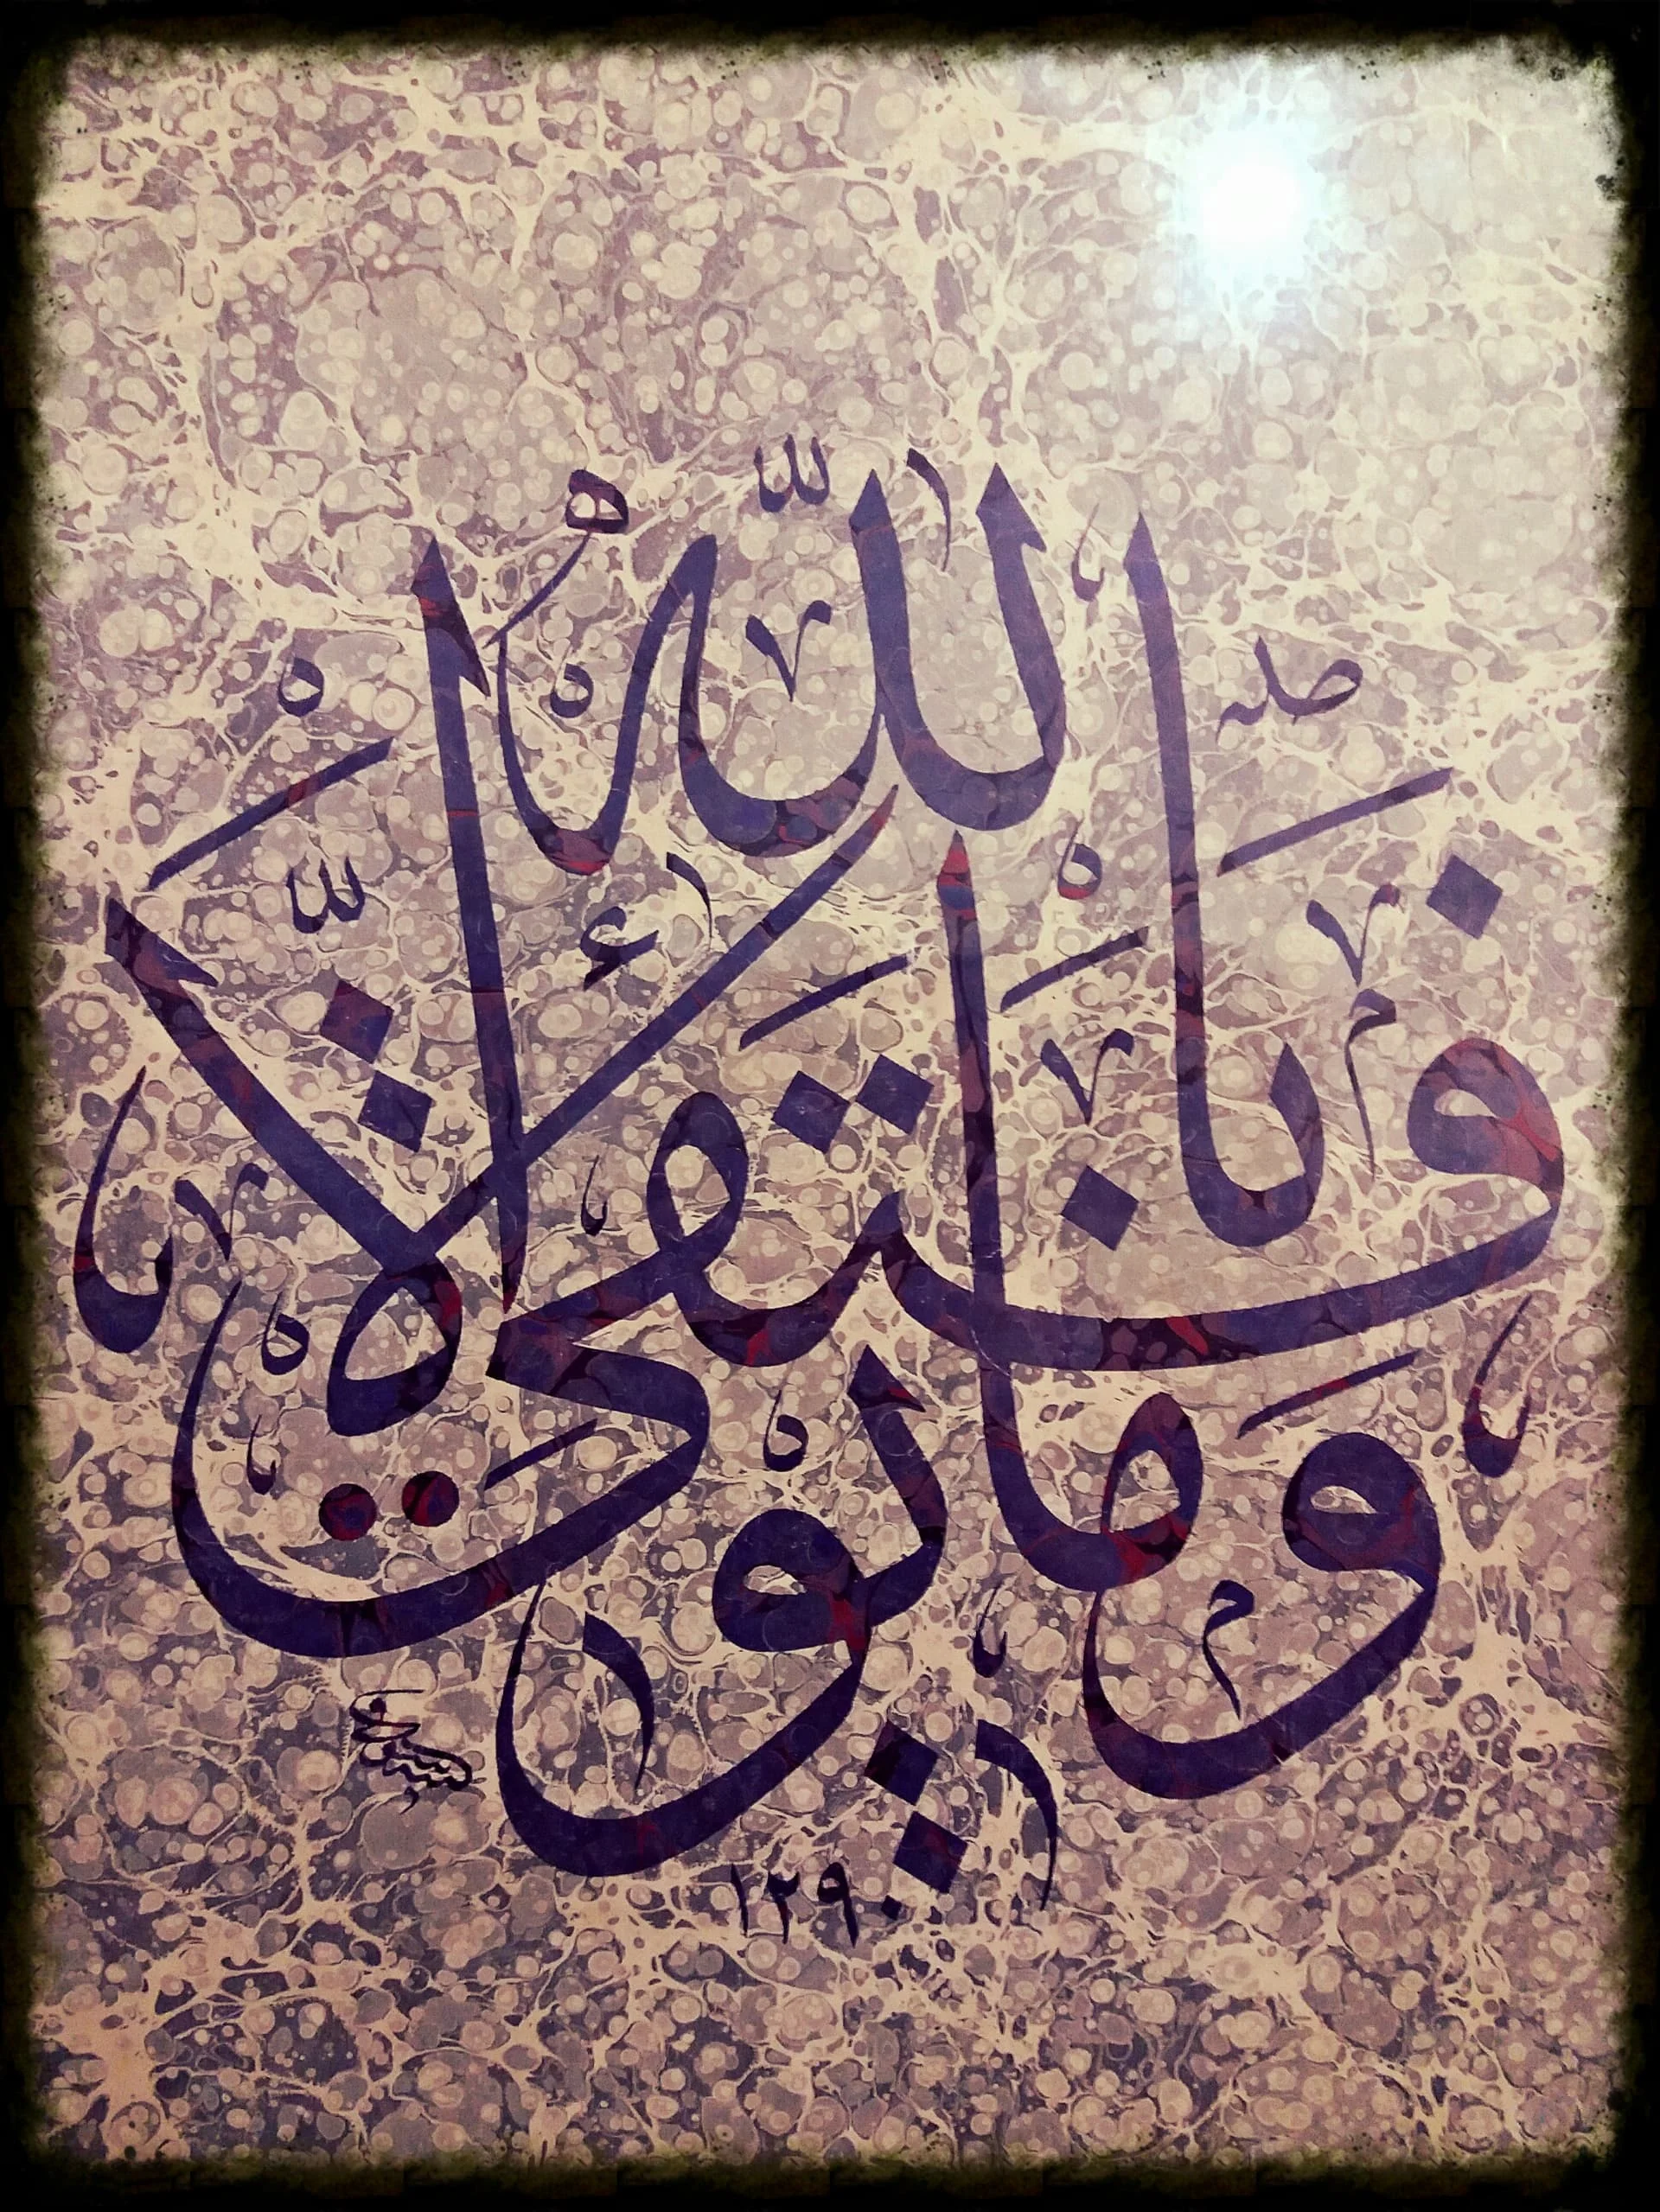 وَمَا تَوْفِيقِي إِلَّا بِاللَّهِ
١٢٩٠